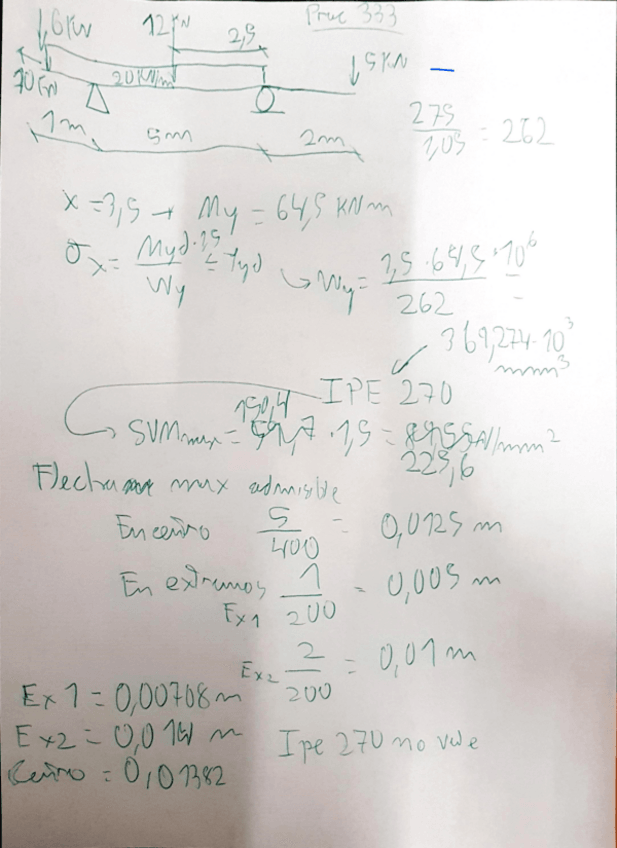 Prac 333
6KN
12KN
2,5
5KN
20KN/m
1m
5m
2m
275/1,05 = 262
x = 3,5 → My = 64,5 KNm
σx = Myd·1,5/Wy ≤ fyd
↳ Wy = 1,5·64,5·10⁶/262
369,274·10³ mm³
IPE 270
150,4
SVMmax = · 1,5 = N/mm²
225,6
Flecha max admisible
En centro 5/400 = 0,0125 m
En extremos 1/200 = 0,005 m
Ex1
Ex2 2/200 = 0,01 m
Ex1 = 0,00708 m
Ex2 = m Ipe 270 no vale
Centro = 0,01382